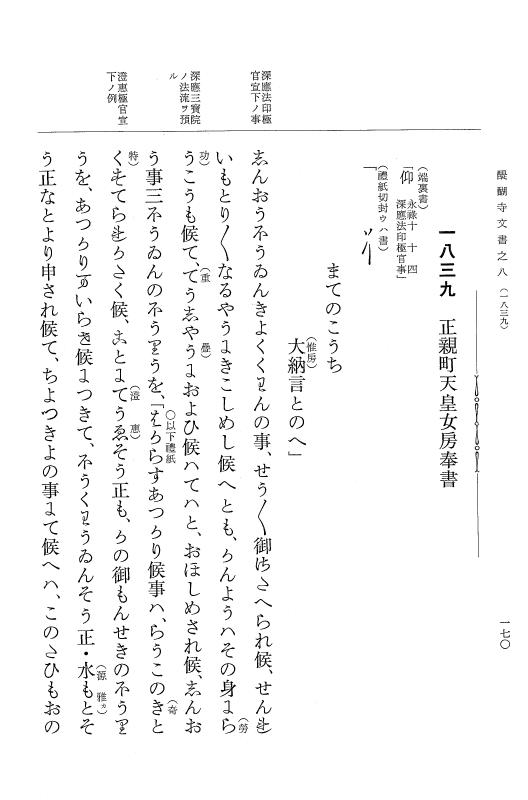 醍醐寺文書之八(一八三九)
一七〇
一八三九 正親町天皇女房奉書
(端裏書)
「仰 永祿十 十 四
深應法印極官事」
(禮紙切封ウハ書)
「
まてのこうち
(惟房)
大納言とのへ」
深應法印極
官宣下ノ事
深應三寶院
ノ法流ヲ預
ル
澄惠極官宣
下ノ例
しんおう不うゐんきよくくわんの事、せう〱御けたへられ候、せんせ
いもとり〱なるやうにきこしめし候へとも、かんようハその身にら(勞)
うこう(功)も候て、てうしやう(重疊)におよひ候ハてハと、おほしめされ候、しんお
う事三不うゐんの不うりうを、「(○以下禮紙)はからすあつかり候事ハ、らうこのきと(奇
特)くせてらせかさく候、ことにてうゑ(澄惠)そう正も、かの御もんせきの不うり
うを、あつかり
いらき候につきて、不うくわうゐんそう正・水もと(源雅カ)そ
う正なとより申され候て、ちよつきよの事にて候へハ、このたひもおの